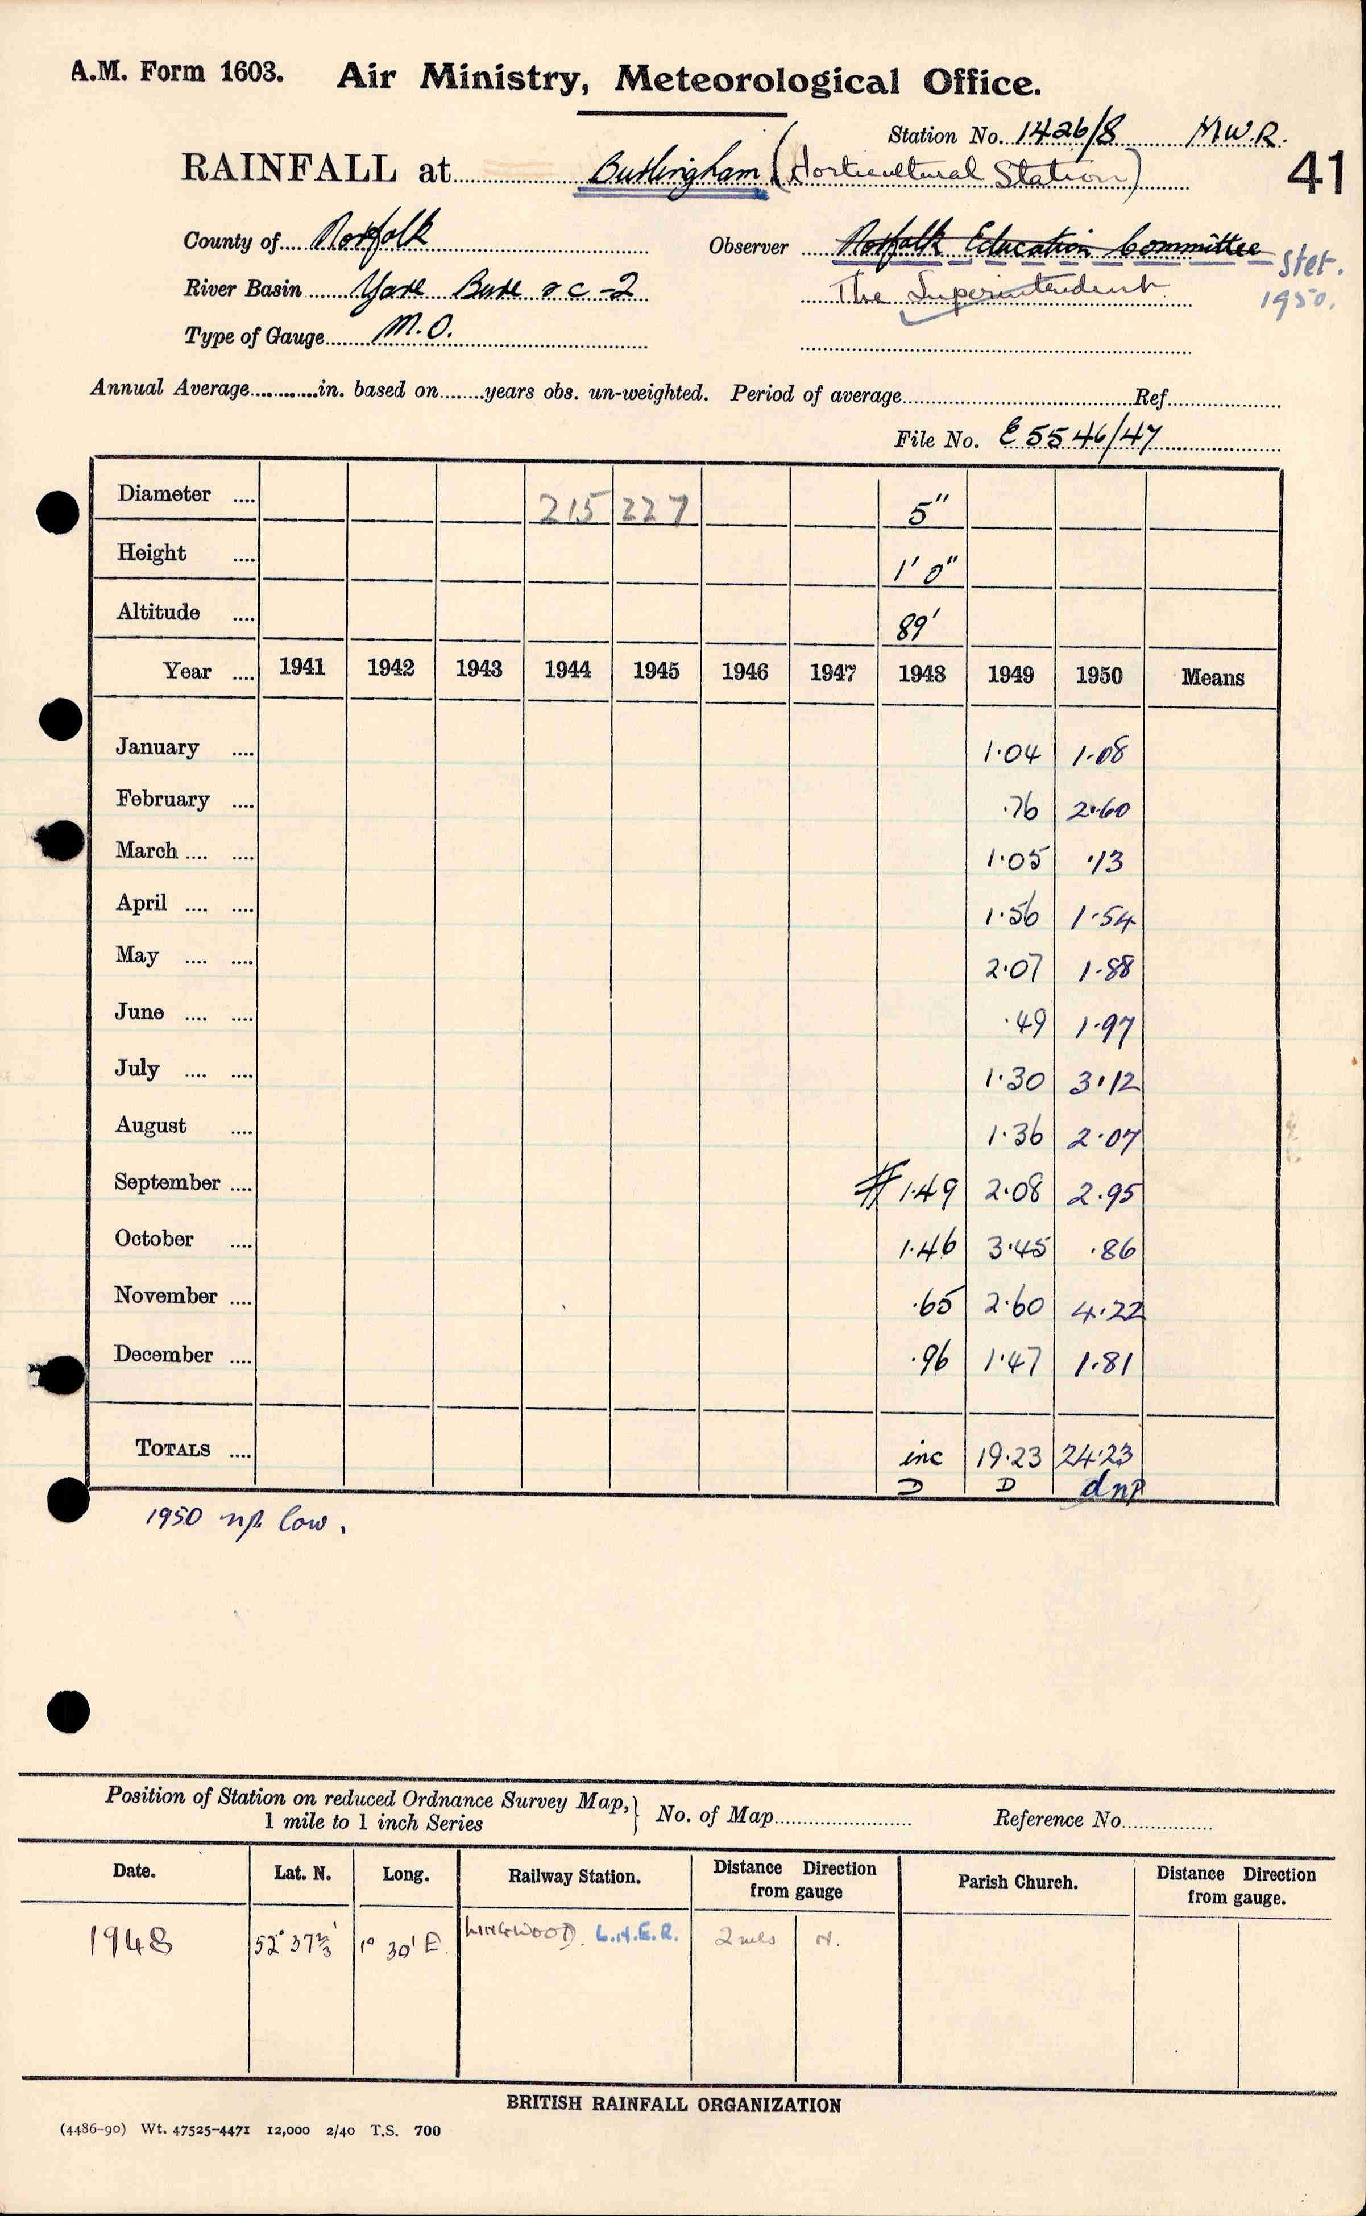 A.M. Form 1603. Air Ministry, Meteorological Office.
Station No. 1426/8 M.W.R.
RAINFALL at Burlingham (Horticultural Station) 41
County of Norfolk Observer Norfolk Education Committee Stet.
River Basin Yare Bure &c -2 The Superintendent 1950.
Type of Gauge M.O.
Annual Average in. based on years obs. un-weighted. Period of average Ref.
File No. E5546/47
Diameter 215 227 5"
Height 1' 0"
Altitude 89'
Year 1941 1942 1943 1944 1945 1946 1947 1948 1949 1950 Means
January 1.04 1.08
February .76 2.60
March 1.05 .13
April 1.56 1.54
May 2.07 1.88
June .49 1.97
July 1.30 3.12
August 1.36 2.07
September # 1.49 2.08 2.95
October 1.46 3.45 .86
November .65 2.60 4.22
December .96 1.47 1.81
TOTALS inc 19.23 24.23
D D dnp
1950 np low.
Position of Station on reduced Ordnance Survey Map, 1 mile to 1 inch Series } No. of Map Reference No.
Date. Lat. N. Long. Railway Station. Distance Direction from gauge Parish Church. Distance Direction from gauge.
1948 52° 37⅔' 1° 30' E. LINGWOOD L.N.E.R. 2 mls N.
BRITISH RAINFALL ORGANIZATION
(4486-90) Wt. 47525-4471 12,000 2/40 T.S. 700